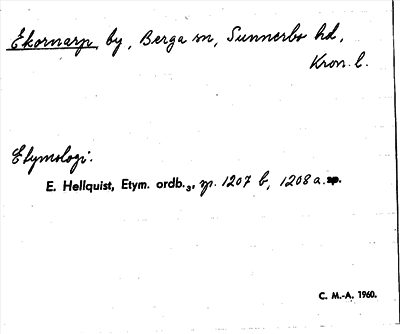 Ekornarp, by, Berga sn, Sunnerbo hd,
Kron. l.
Etymologi:
E. Hellquist, Etym. ordb.₃, p. 1207 b, 1208 a.
C. M.-A. 1960.